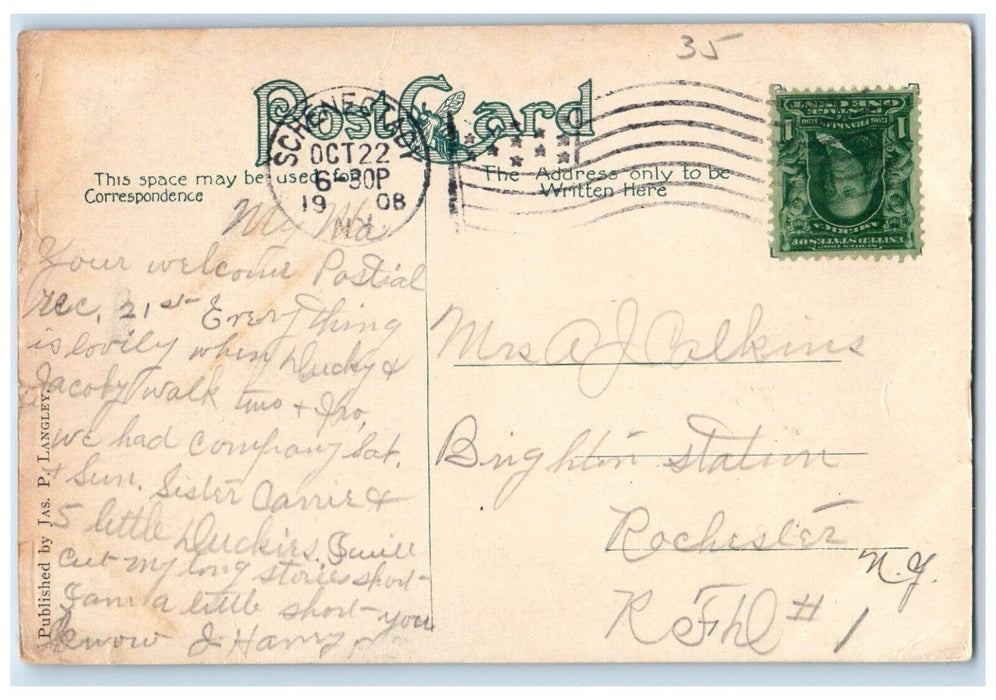 35
Post Card
SCHENECTADY
OCT 22
6-30P
19 08
N.Y.
ONE CENT
FRANKLIN
1 1
UNITED STATES OF
AMERICA
This space may be used for
Correspondence
The Address only to be
Written Here
My Ma
Your welcome Postial
rec, 21st Everything
is lovily when Ducky &
Jacoby walk two + two,
we had company Sat.
+ Sun. Sister Carrie &
5 little Duckies. I will
cut my long stories short
I am a little short you
know J. Harry
Published by Jas. P. Langley.
Mrs A J Calkins
Brighton Station
Rochester
N.Y.
R F D # 1